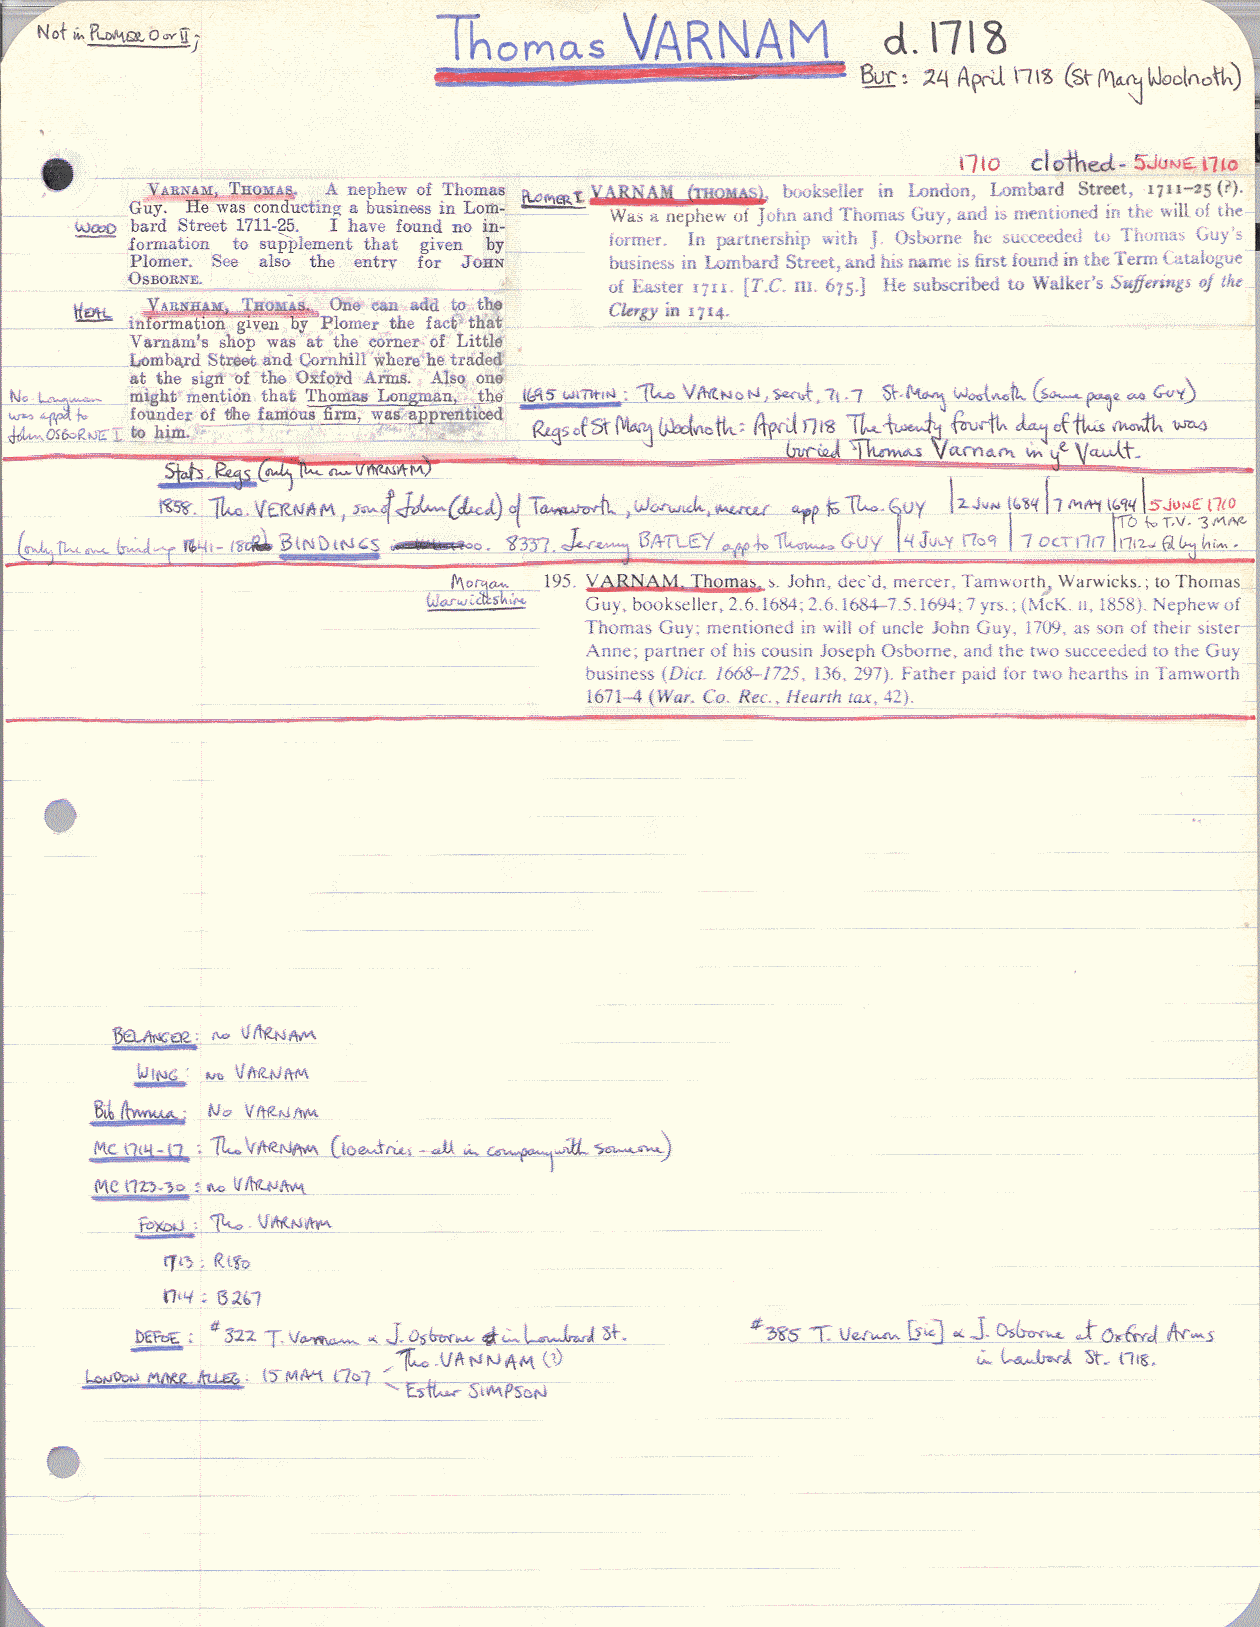 Not in PLOMER O or II;
Thomas VARNAM d. 1718
Bur: 24 April 1718 (St Mary Woolnoth)
1710 clothed - 5 JUNE 1710
WOOD
VARNAM, THOMAS. A nephew of Thomas
Guy. He was conducting a business in Lom-
bard Street 1711-25. I have found no in-
formation to supplement that given by
Plomer. See also the entry for JOHN
OSBORNE.
HEAL
VARNHAM, THOMAS. One can add to the
information given by Plomer the fact that
Varnam's shop was at the corner of Little
Lombard Street and Cornhill where he traded
at the sign of the Oxford Arms. Also one
might mention that Thomas Longman, the
founder of the famous firm, was apprenticed
to him.
No Longman
was appd to
John OSBORNE I
PLOMER I
VARNAM (THOMAS), bookseller in London, Lombard Street, 1711–25 (?).
Was a nephew of John and Thomas Guy, and is mentioned in the will of the
former. In partnership with J. Osborne he succeeded to Thomas Guy's
business in Lombard Street, and his name is first found in the Term Catalogue
of Easter 1711. [T.C. III. 675.] He subscribed to Walker's Sufferings of the
Clergy in 1714.
1695 WITHIN: Tho VARNON, servt, 71.7 St. Mary Woolnoth (same page as GUY)
Regs of St Mary Woolnoth: April 1718 The twenty fourth day of this month was
buried Thomas Varnam in ye Vault.
Stats. Regs (only the one VARNAM)
1858. Tho. VERNAM, son of John (decd) of Tamworth, Warwick, mercer app to Tho. GUY | 2 JUN 1684 | 7 MAY 1694 | 5 JUNE 1710
(only the one binding 1641-1800) BINDINGS 8337. Jeremy BATLEY app to Thomas GUY | 4 JULY 1709 | 7 OCT 1717 | TO to T.V. 3 MAR
1712 & by him.
Morgan
Warwickshire
195. VARNAM, Thomas, s. John, dec'd, mercer, Tamworth, Warwicks.; to Thomas
Guy, bookseller, 2.6.1684; 2.6.1684–7.5.1694; 7 yrs.; (McK. II, 1858). Nephew of
Thomas Guy; mentioned in will of uncle John Guy, 1709, as son of their sister
Anne; partner of his cousin Joseph Osborne, and the two succeeded to the Guy
business (Dict. 1668–1725, 136, 297). Father paid for two hearths in Tamworth
1671–4 (War. Co. Rec., Hearth tax, 42).
BELANGER: no VARNAM
WING: no VARNAM
Bib Annua: No VARNAM
MC 1714-17: Tho VARNAM (10 entries - all in company with someone)
MC 1723-30: no VARNAM
FOXON: Tho. VARNAM
1713: R180
1714: B267
DEFOE: #322 T. Varnam & J. Osborne in Lombard St.
#385 T. Vernon [sic] & J. Osborne at Oxford Arms
in Lombard St. 1718.
LONDON MARR. ALLEG: 15 MAY 1707
Tho. VANNAM (?)
Esther SIMPSON